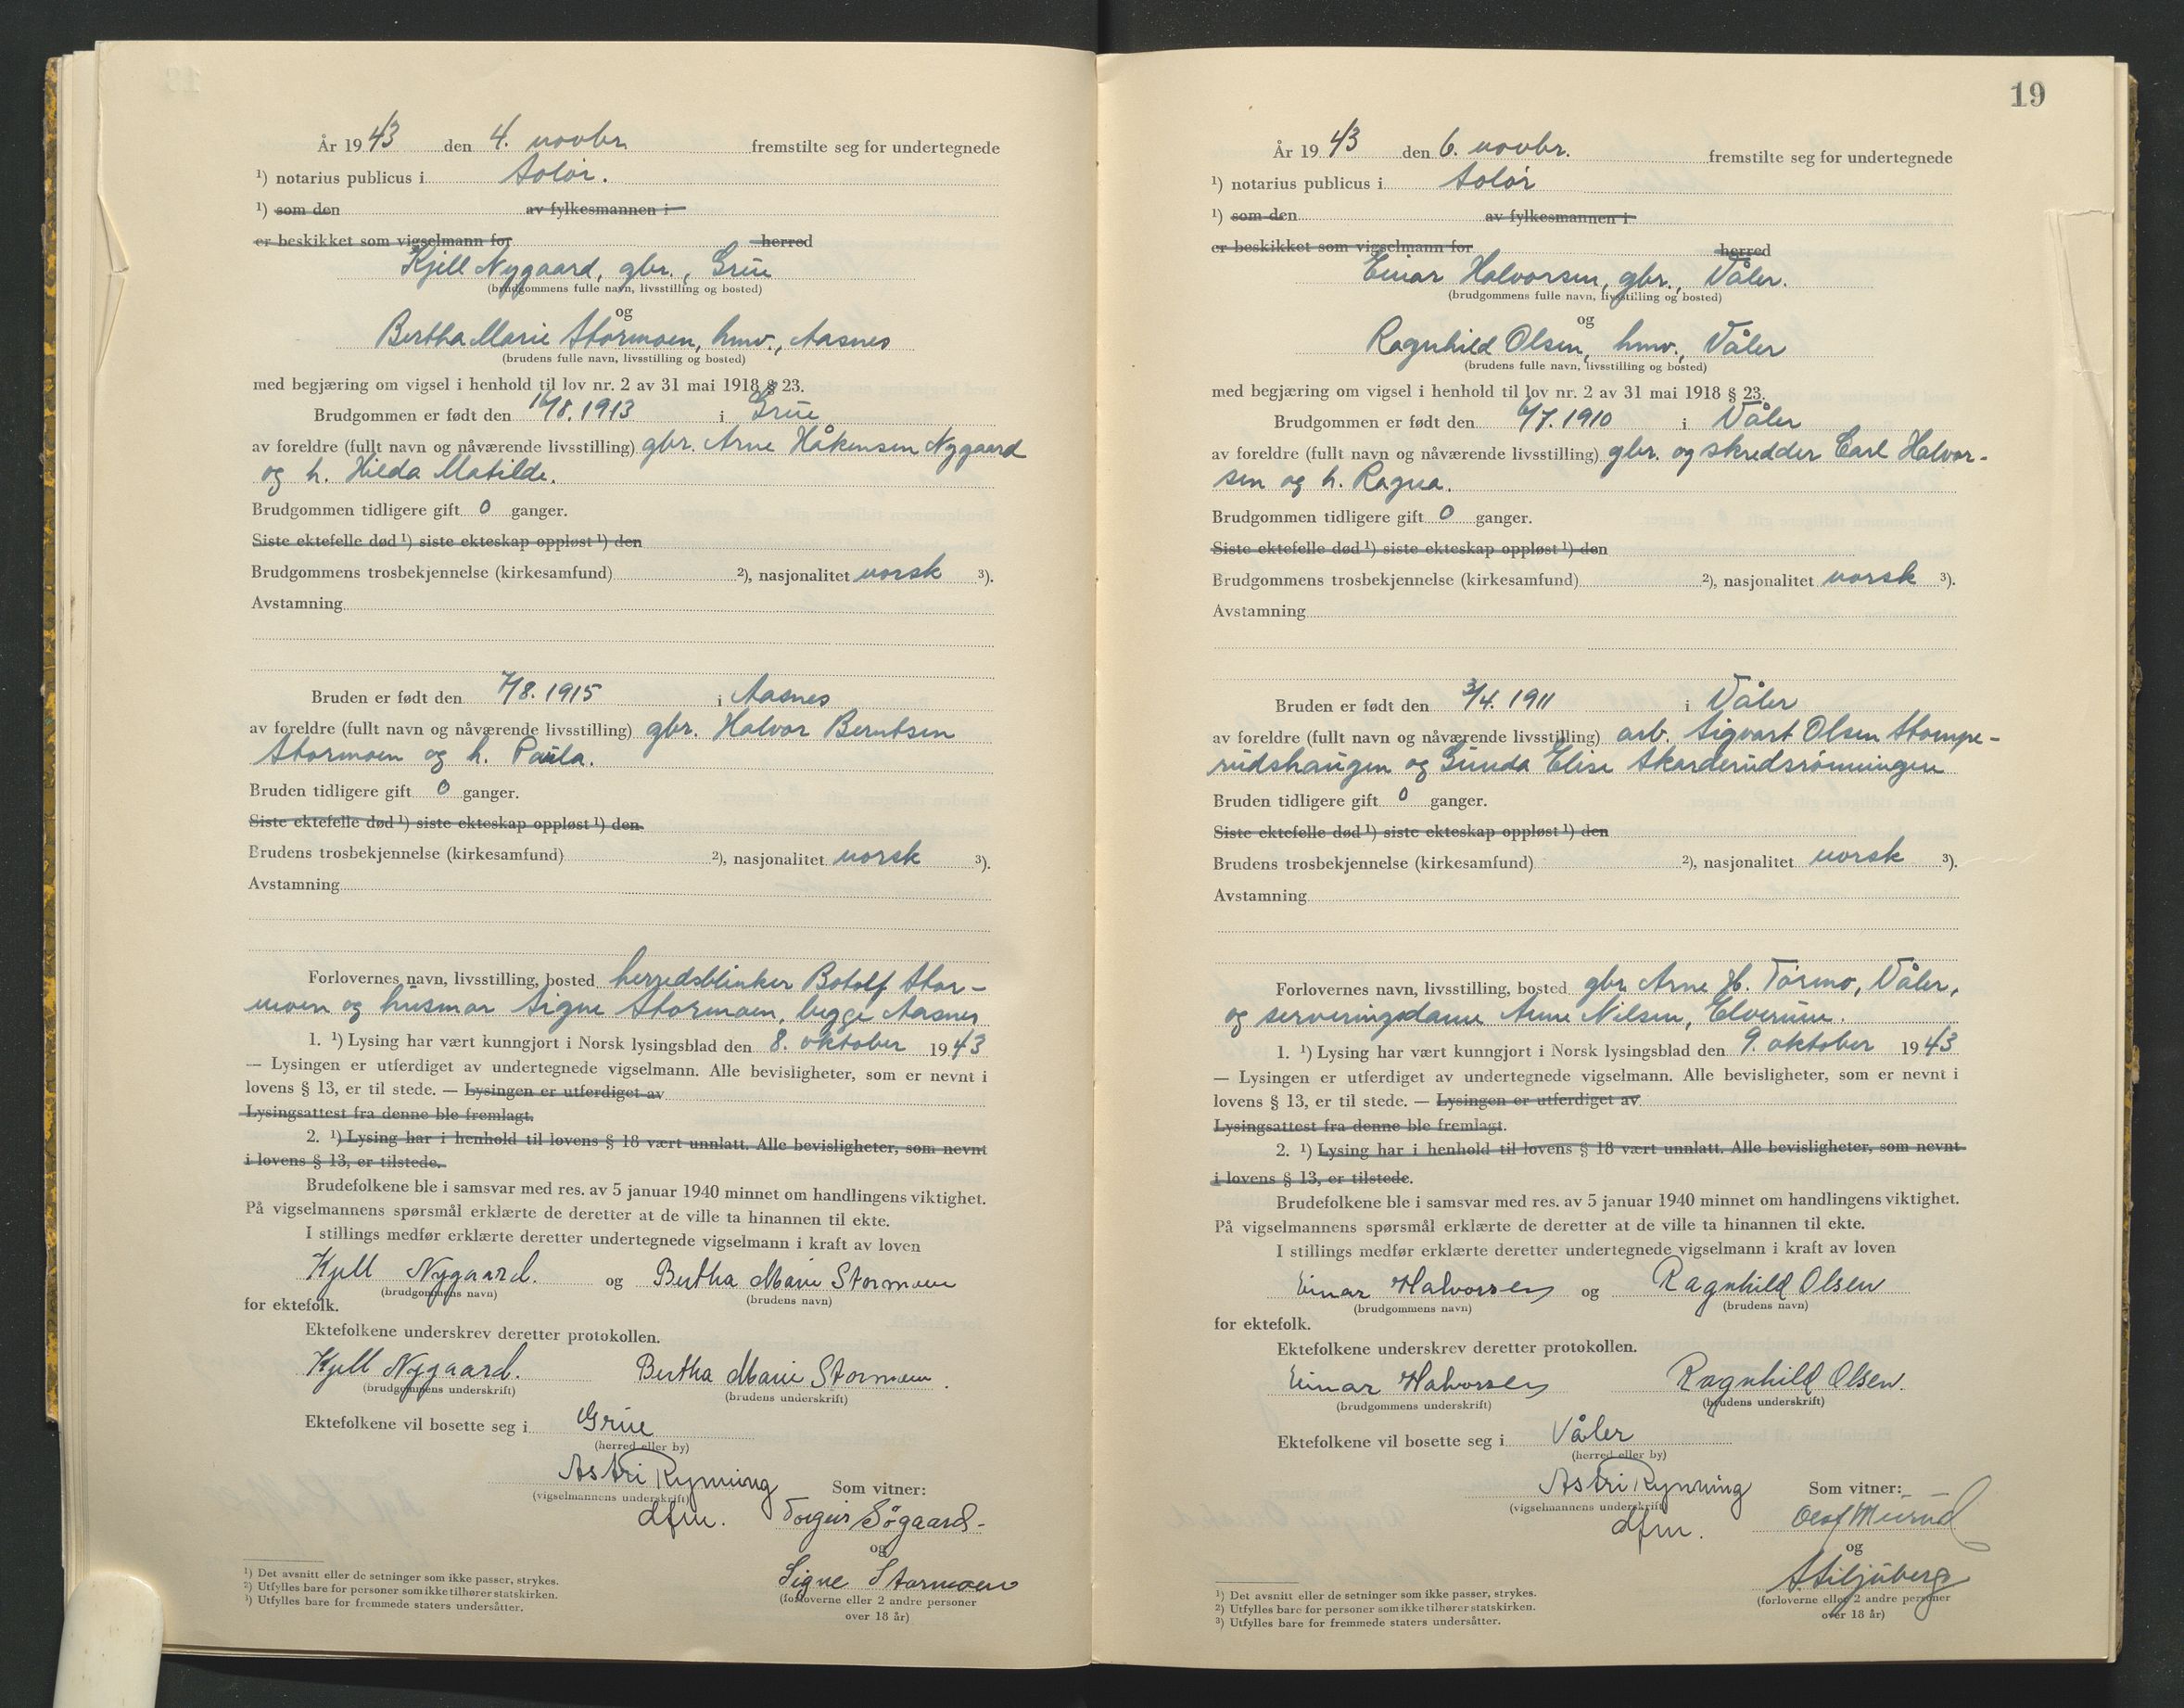 År 1943 den 4. novbr. fremstilte seg for undertegnede
¹) notarius publicus i Solør.
¹) som den av fylkesmannen i
er beskikket som vigselmann for herred
Kjell Nygaard, gbr., Grue
(brudgommens fulle navn, livsstilling og bosted)
og
Bertha Marie Stormoen, hmv., Aasnes
(brudens fulle navn, livsstilling og bosted)
med begjæring om vigsel i henhold til lov nr. 2 av 31 mai 1918 § 23.
Brudgommen er født den 16/8. 1913 i Grue
av foreldre (fullt navn og nåværende livsstilling) gbr. Arne Håkensen Nygaard
og h. Hilda Matilde.
Brudgommen tidligere gift 0 ganger.
Siste ektefelle død ¹) siste ekteskap oppløst ¹) den
Brudgommens trosbekjennelse (kirkesamfund) ²), nasjonalitet norsk ³).
Avstamning
Bruden er født den 7/8. 1915 i Aasnes
av foreldre (fullt navn og nåværende livsstilling) gbr. Halvor Berntsen
Stormoen og h. Paula.
Bruden tidligere gift 0 ganger.
Siste ektefelle død ¹) siste ekteskap oppløst ¹) den.
Brudens trosbekjennelse (kirkesamfund) ²), nasjonalitet norsk ³).
Avstamning
Forlovernes navn, livsstilling, bosted herredsblinker Botolf Stor-
moen og husmor Signe Stormoen, begge Aasnes
1. ¹) Lysing har vært kunngjort i Norsk lysingsblad den 8. oktober 1943
— Lysingen er utferdiget av undertegnede vigselmann. Alle bevisligheter, som er nevnt i
lovens § 13, er til stede. — Lysingen er utferdiget av
Lysingsattest fra denne ble fremlagt.
2. ¹) Lysing har i henhold til lovens § 18 vært unnlatt. Alle bevisligheter, som nevnt
i lovens § 13, er tilstede.
Brudefolkene ble i samsvar med res. av 5 januar 1940 minnet om handlingens viktighet.
På vigselmannens spørsmål erklærte de deretter at de ville ta hinannen til ekte.
I stillings medfør erklærte deretter undertegnede vigselmann i kraft av loven
Kjell Nygaard. og Bertha Marie Stormoen
(brudgommens navn) (brudens navn)
for ektefolk.
Ektefolkene underskrev deretter protokollen.
Kjell Nygaard. Bertha Marie Stormoen.
(brudgommens underskrift) (brudens underskrift)
Ektefolkene vil bosette seg i Grue
(herred eller by)
Astri Rynning Som vitner:
(vigselmannens underskrift)
dfm. Torgeir Søgaard-
og
Signe Stormoen
(forloverne eller 2 andre personer
over 18 år)
¹) Det avsnitt eller de setninger som ikke passer, strykes.
²) Utfylles bare for personer som ikke tilhører statskirken.
³) Utfylles bare for fremmede staters undersåtter.
19
År 1943 den 6. novbr. fremstilte seg for undertegnede
¹) notarius publicus i Solør
¹) som den av fylkesmannen i
er beskikket som vigselmann for herred
Einar Halvorsen, gbr., Våler.
(brudgommens fulle navn, livsstilling og bosted)
og
Ragnhild Olsen, hmv., Våler
(brudens fulle navn, livsstilling og bosted)
med begjæring om vigsel i henhold til lov nr. 2 av 31 mai 1918 § 23.
Brudgommen er født den 6/7. 1910 i Våler
av foreldre (fullt navn og nåværende livsstilling) gbr. og skredder Carl Halvor-
sen og h. Ragna.
Brudgommen tidligere gift 0 ganger.
Siste ektefelle død ¹) siste ekteskap oppløst ¹) den
Brudgommens trosbekjennelse (kirkesamfund) ²), nasjonalitet norsk ³).
Avstamning
Bruden er født den 3/4. 1911 i Våler
av foreldre (fullt navn og nåværende livsstilling) arb. Sigvart Olsen Stompe-
rudshaugen og Gunda Elise Skarderudsrønningen
Bruden tidligere gift 0 ganger.
Siste ektefelle død ¹) siste ekteskap oppløst ¹) den
Brudens trosbekjennelse (kirkesamfund) ²), nasjonalitet norsk ³).
Avstamning
Forlovernes navn, livsstilling, bosted gbr. Arne H. Tørmo, Våler,
og serveringsdame Anne Nilsen, Elverum.
1. ¹) Lysing har vært kunngjort i Norsk lysingsblad den 9. oktober 1943
— Lysingen er utferdiget av undertegnede vigselmann. Alle bevisligheter, som er nevnt i
lovens § 13, er til stede. — Lysingen er utferdiget av
Lysingsattest fra denne ble fremlagt.
2. ¹) Lysing har i henhold til lovens § 18 vært unnlatt. Alle bevisligheter, som nevnt
i lovens § 13, er tilstede.
Brudefolkene ble i samsvar med res. av 5 januar 1940 minnet om handlingens viktighet.
På vigselmannens spørsmål erklærte de deretter at de ville ta hinannen til ekte.
I stillings medfør erklærte deretter undertegnede vigselmann i kraft av loven
Einar Halvorsen og Ragnhild Olsen
(brudgommens navn) (brudens navn)
for ektefolk.
Ektefolkene underskrev deretter protokollen.
Einar Halvorsen Ragnhild Olsen.
(brudgommens underskrift) (brudens underskrift)
Ektefolkene vil bosette seg i Våler
(herred eller by)
Astri Rynning Som vitner:
(vigselmannens underskrift)
dfm. Olaf Murud
og
S. Siljuberg
(forloverne eller 2 andre personer
over 18 år)
¹) Det avsnitt eller de setninger som ikke passer, strykes.
²) Utfylles bare for personer som ikke tilhører statskirken.
³) Utfylles bare for fremmede staters undersåtter.